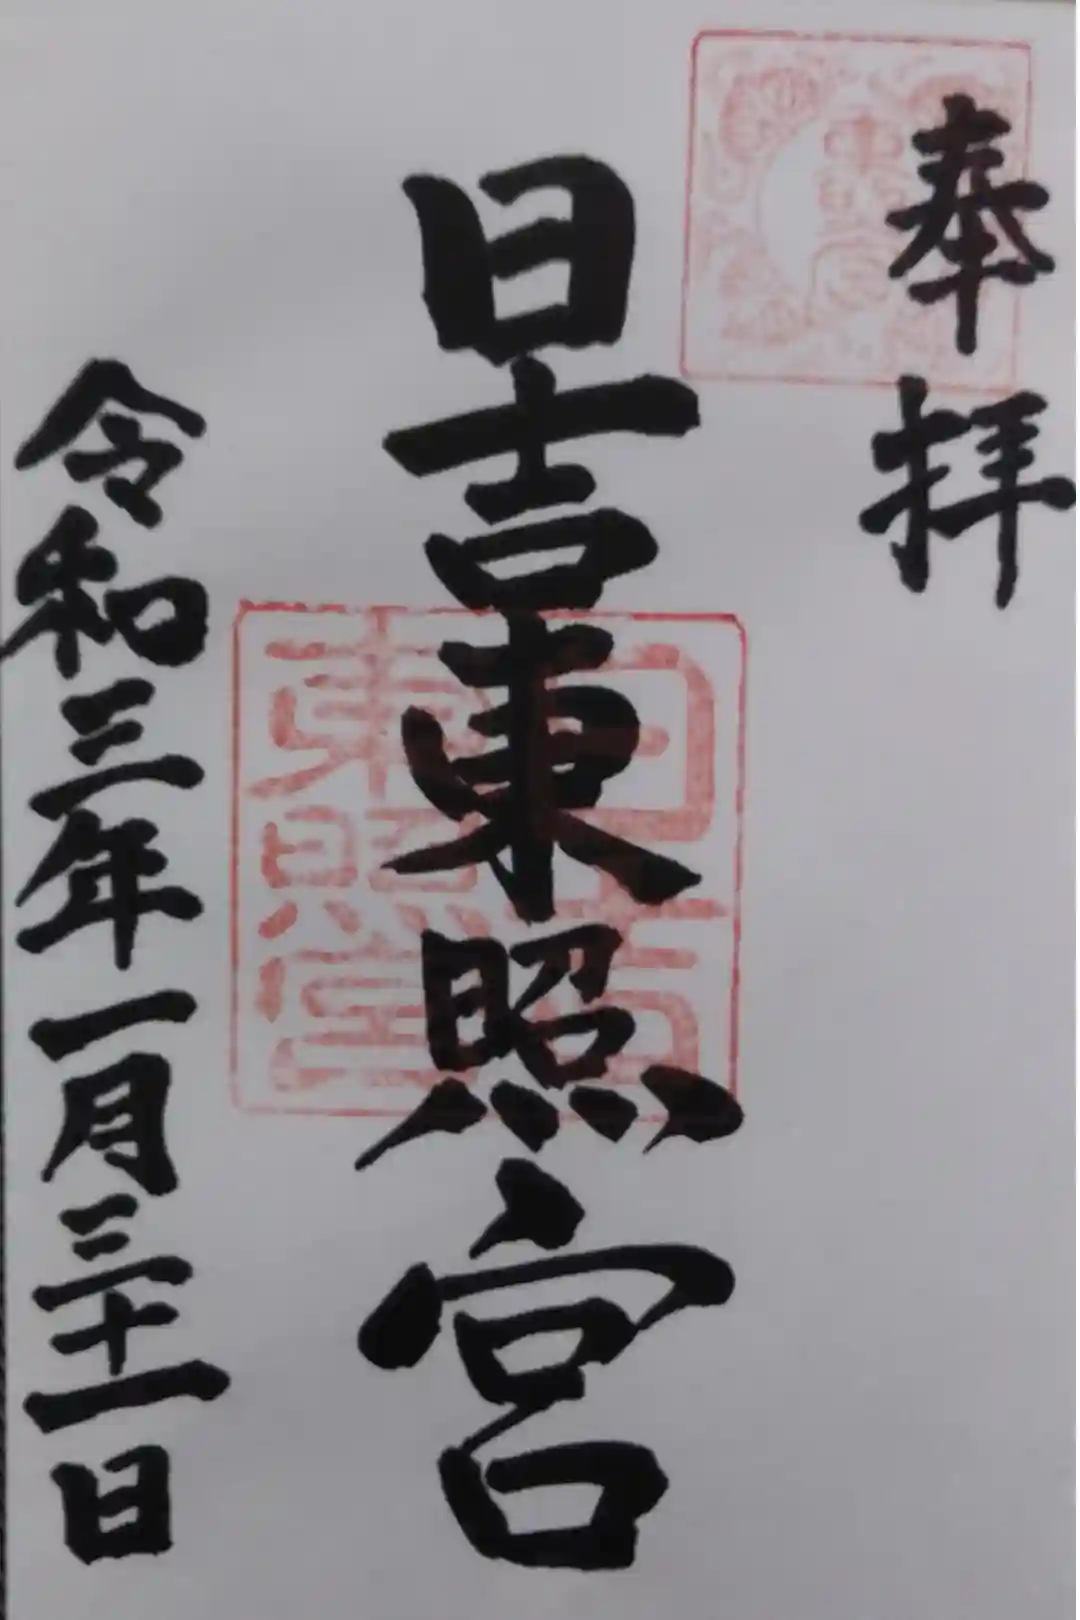 奉拝
日吉東照宮
日吉
東照宮
令和三年一月三十一日